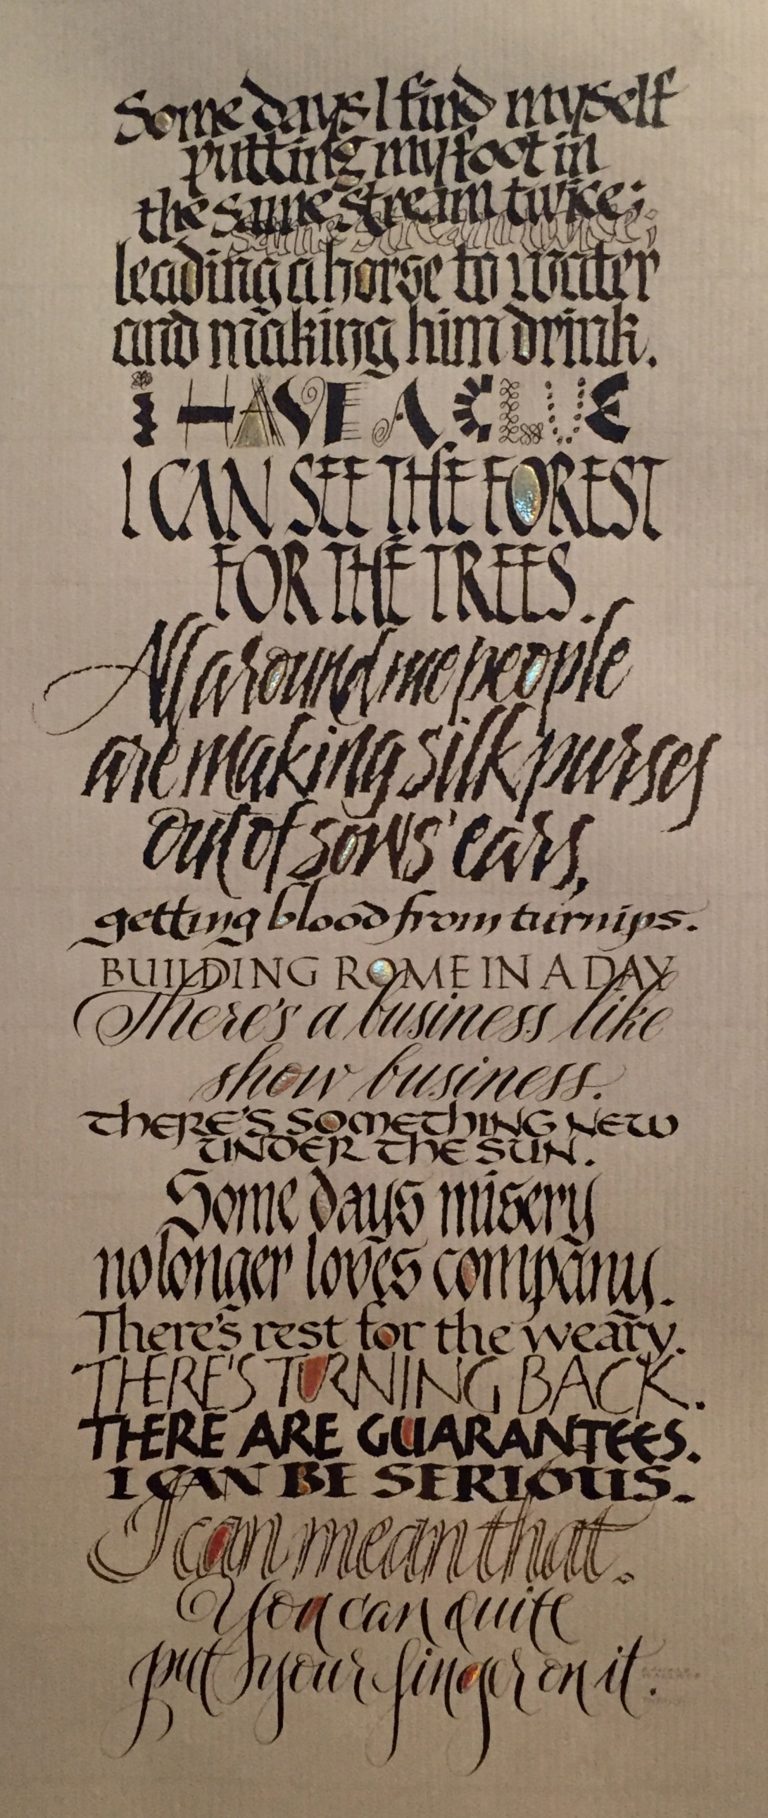 Some days I find myself
putting my foot in
the same stream twice;
same stream twice;
leading a horse to water
and making him drink.
i HAVE A CLUE
I CAN SEE THE FOREST
FOR THE TREES.
All around me people
are making silk purses
out of sows' ears,
getting blood from turnips.
BUILDING ROME IN A DAY
There's a business like
show business.
THERE'S SOMETHING NEW
UNDER THE SUN.
Some days misery
no longer loves company.
There's rest for the weary.
THERE'S TURNING BACK.
THERE ARE GUARANTEES.
I CAN BE SERIOUS.
I can mean that.
You can quite
put your finger on it.